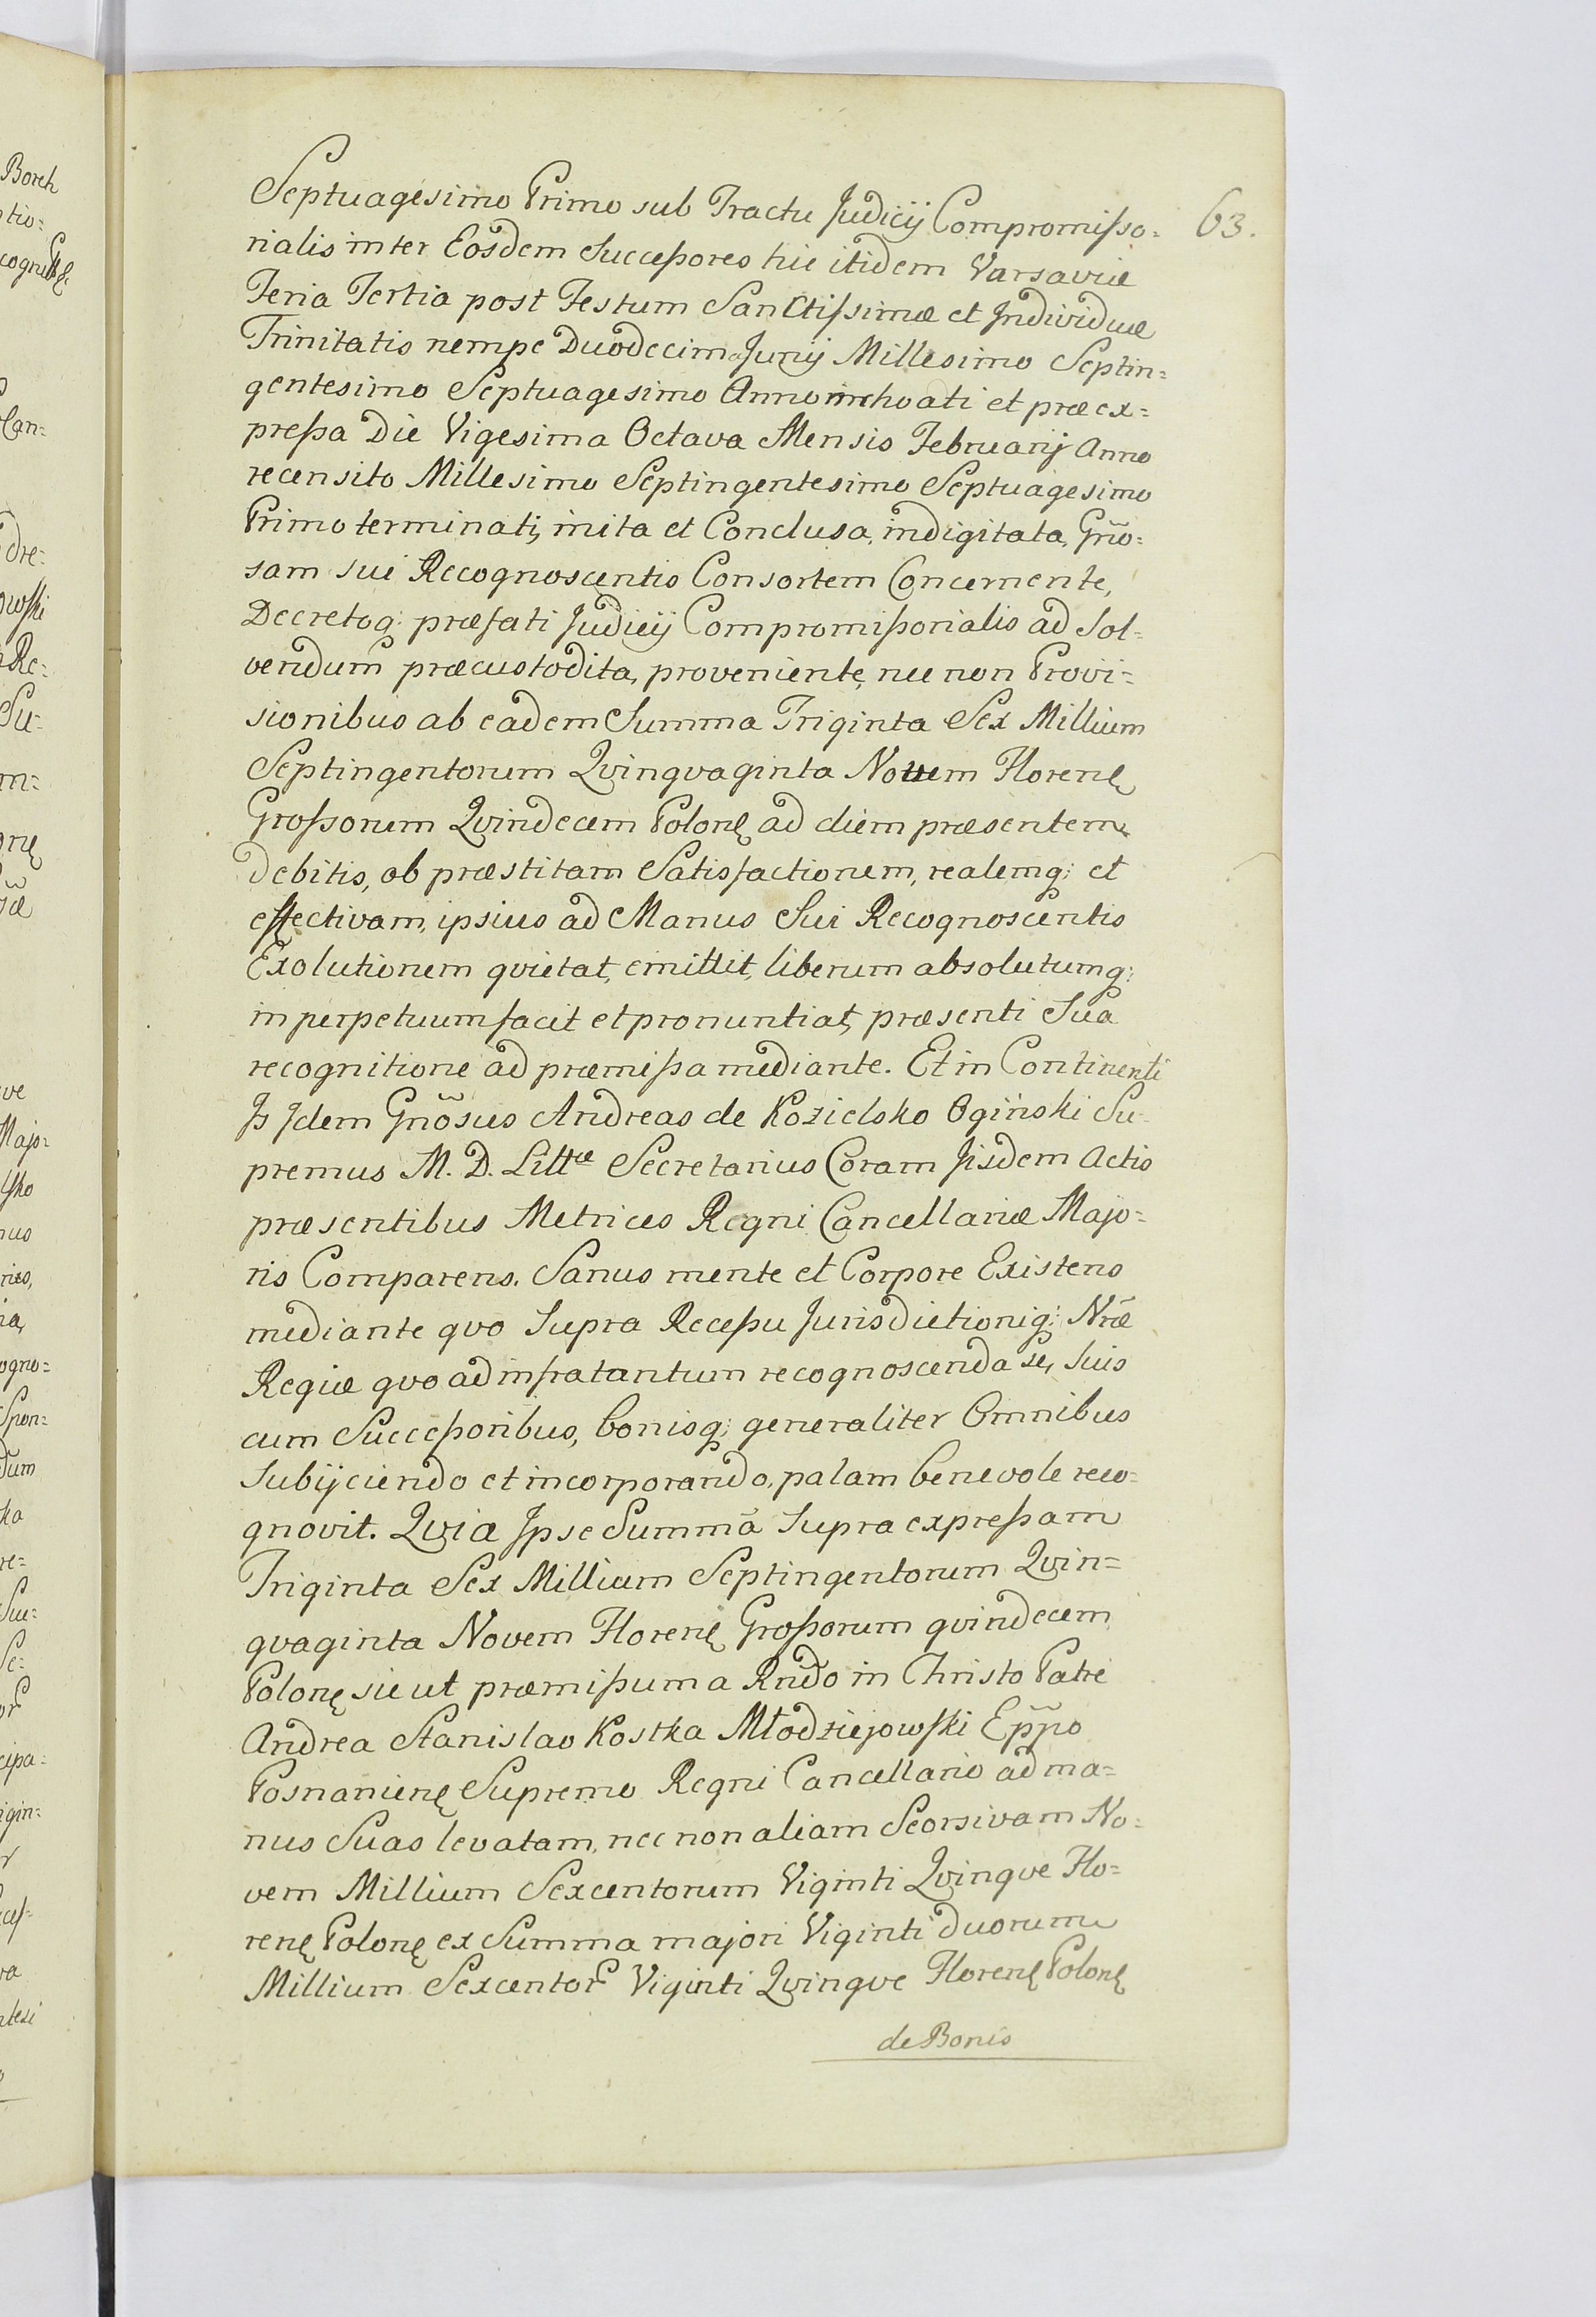 Septuagesimo Primo sub Tractu Judicij Compromisso=
63.
rialis inter Eosdem Successores hic itidem Varsaviæ
Feria Tertia post Festum Sanctissimæ et Individuæ
Trinitatis nempe Duodecima Junij Millesimo Septin=
gentesimo Septuagesimo Anno inchoati et præex=
pressa Die Vigesima Octava Mensis Februarij Anno
recensito Millesimo Septingentesimo Septuagesimo
Primo terminati, inita et Conclusa, indigitata, Gño=
sam sui Recognoscentis Consortem Concernente,
Decretoq: præfati Judicij Compromissorialis ad Sol=
vendum præcustodita, proveniente, nec non Provi=
sionibus ab eadem Summa Triginta Sex Millium
Septingentorum Qvinqvaginta Novem Florenę
Grossorum Qvindecem Polonę ad diem præsentem
Debitis, ob præstitam Satisfactionem, realemq: et
effectivam, ipsius ad Manus Sui Recognoscentis
Exolutionem qvietat, emittit, liberum absolutumq:
in perpetuum facit et pronuntiat, præsenti Sua
recognitione ad præmissa mediante. Et in Continenti
Js Jdem Gnõsus Andreas de Kozielsko Ogiński Su=
premus M. D. Littæ Secretarius Coram Jisdem Actis
præsentibus Metrices Regni Cancellariæ Majo=
ris Comparens. Sanus mente et Corpore Existens
mediante qvo Supra Recessu Jurisdictioniq: Nræ̃
Regiæ qvo ad infra tantum recognoscenda se, suis
cum Successoribus, bonisq: generaliter Omnibus
Subijciendo et incorporando, palam benevole reco=
gnovit. Qvia Jpse Summã Supra expressam
Triginta Sex Millium Septingentorum Qvin=
qvaginta Novem Florenę Grossorum qvindecem
Polonę sicut præmissum a Rndo in Christo Patre
Andrea Stanislao Kostka Młodziejowski Epp̃o
Posnanienę Supremo Regni Cancellario ad ma=
nus Suas levatam, nec non aliam Seorsivam No=
vem Millium Sexcentorum Viginti Qvinqve Flo=
renę Polonę ex Summa majori Viginti duorum
Millium Sexcentor Viginti Qvinqve Florenę Polonę
de Bonis